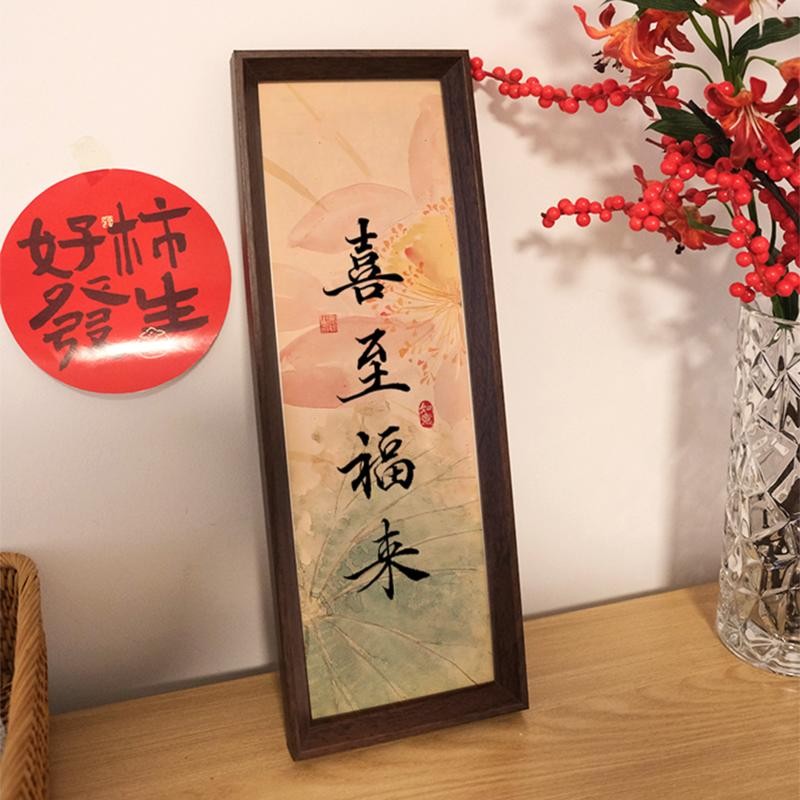 好柿
發生
喜至福来
如意